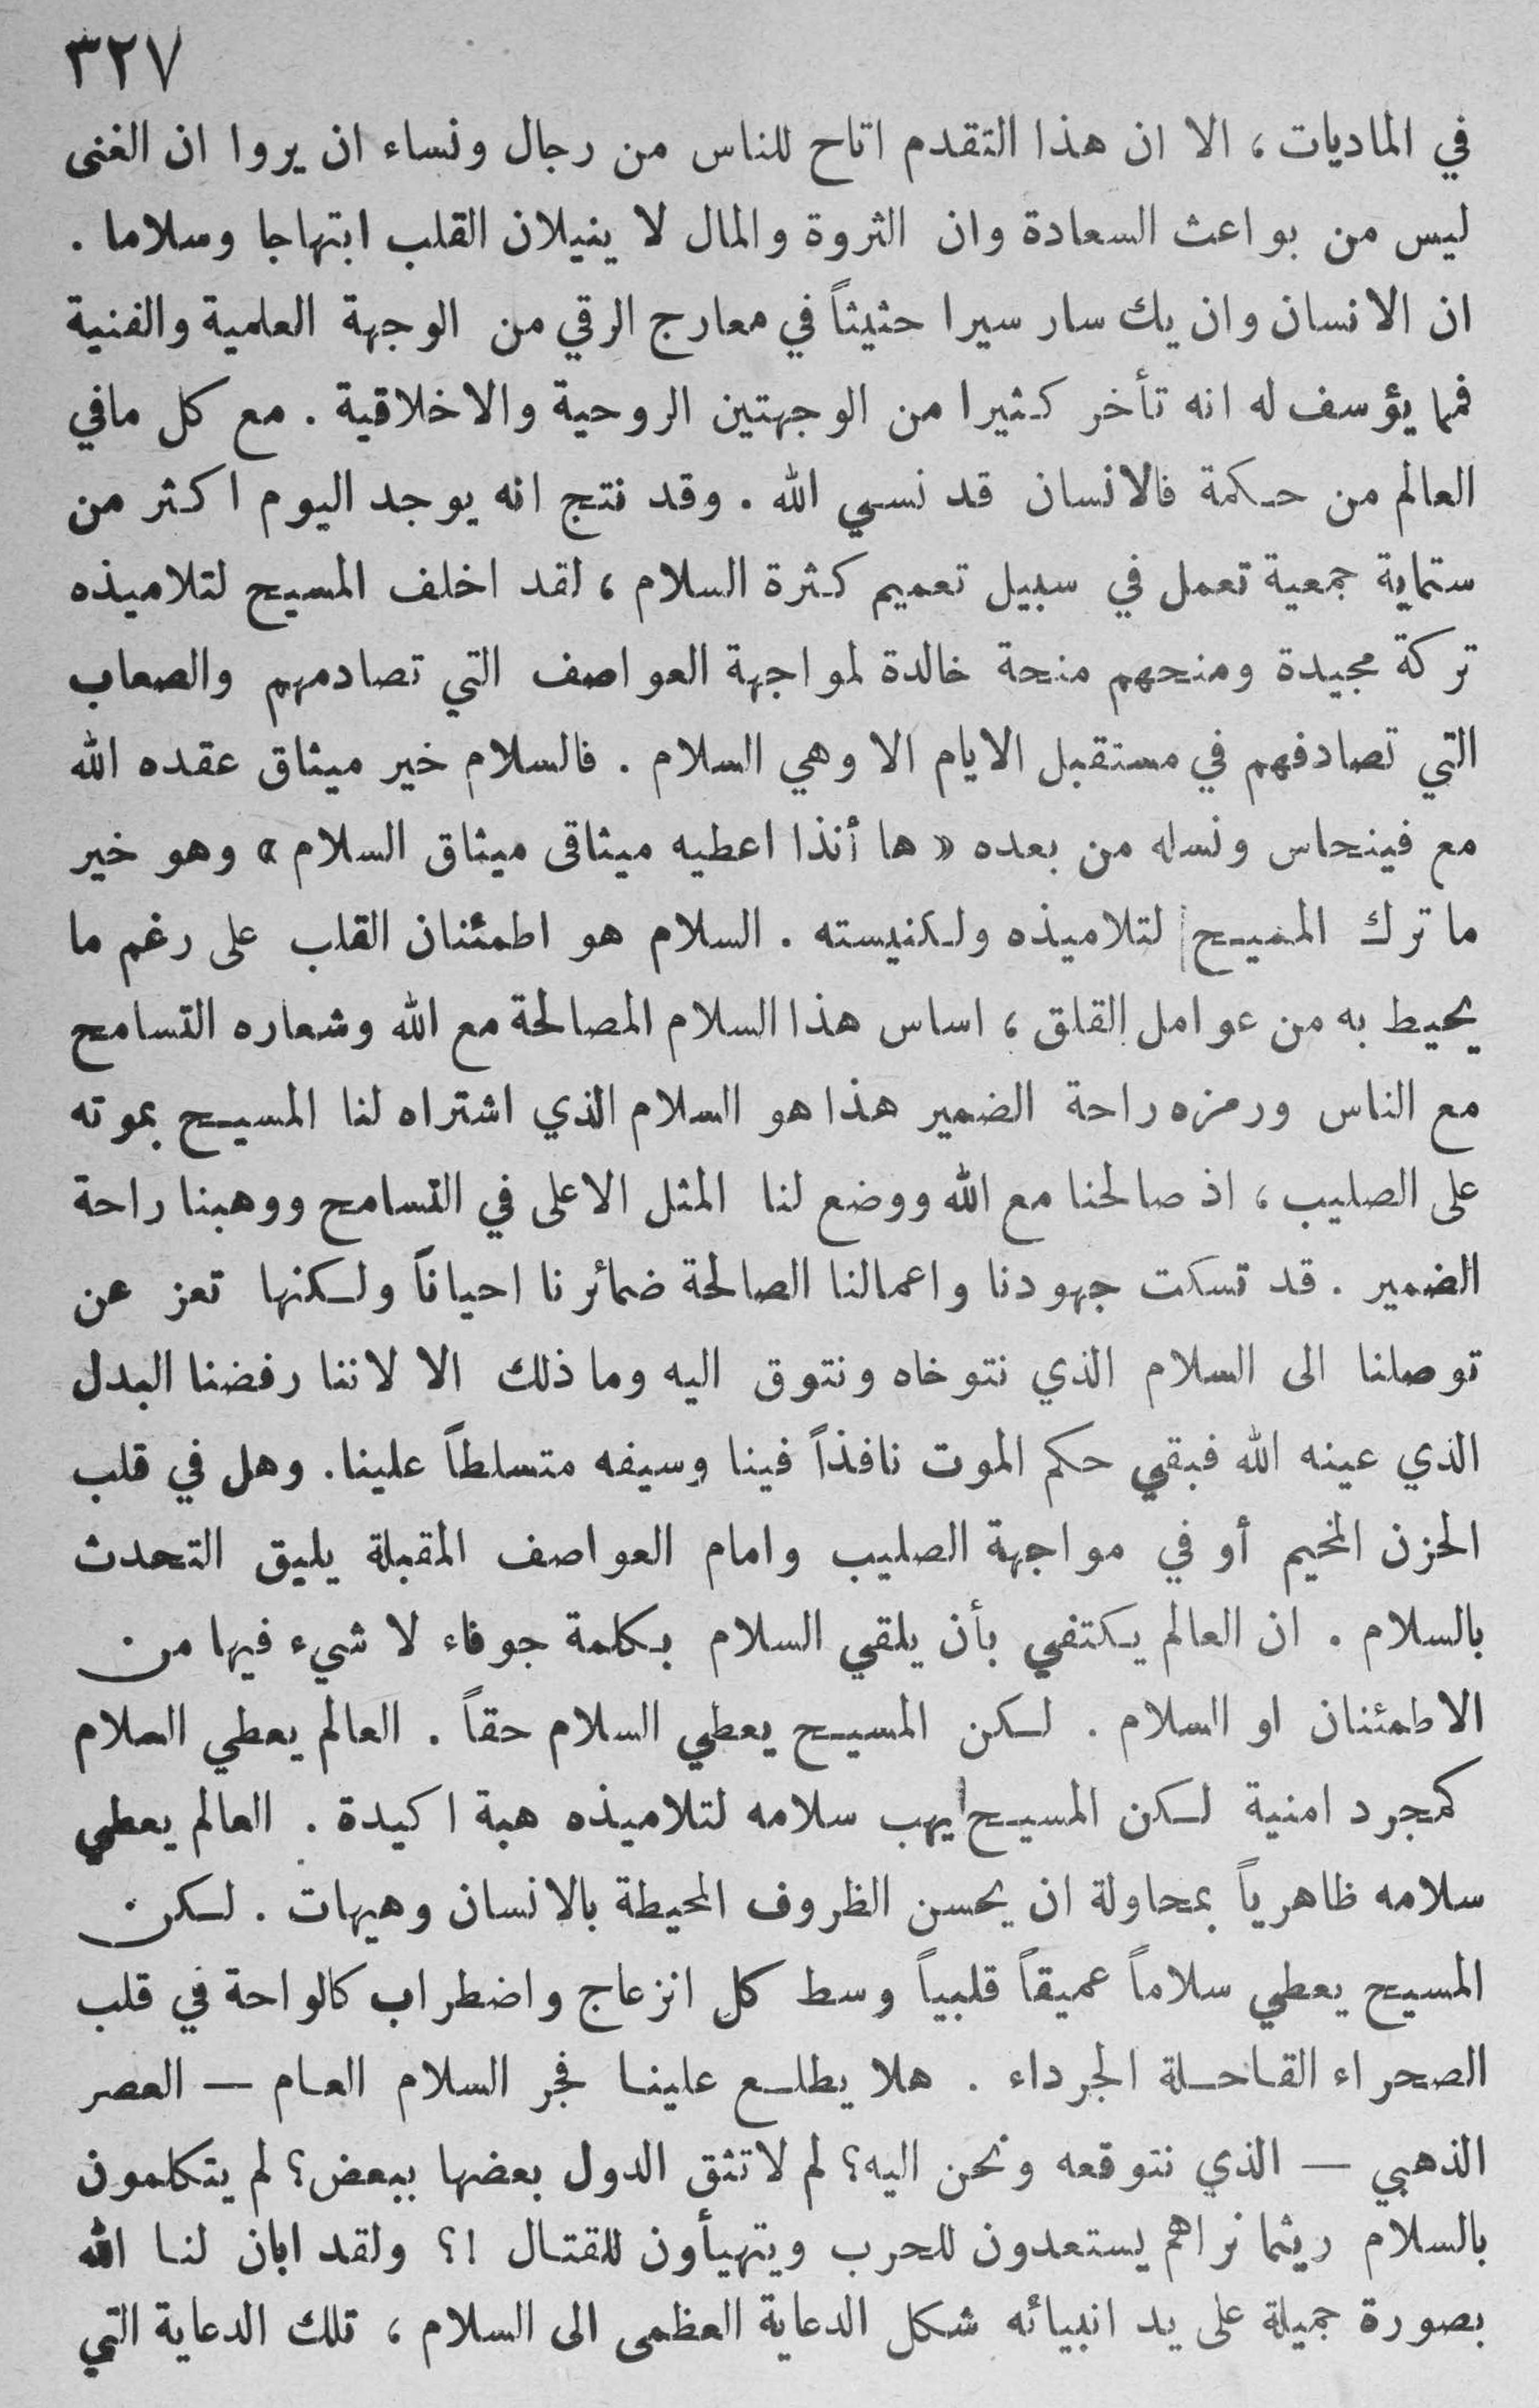 ٣٢٧
في الماديات، الا ان هذا التقدم اتاح للناس من رجال ونساء ان يروا ان الغنى
ليس من بواعث السعادة وان الثروة والمال لا ينيلان القلب ابتهاجا وسلاما .
ان الانسان وان يك سار سيرا حثيثاً في معارج الرقي من الوجهة العلمية والفنية
فمما يؤسف له انه تأخر كثيرا من الوجهتين الروحية والاخلاقية . مع كل مافي
العالم من حكمة فالانسان قد نسي الله . وقد نتج انه يوجد اليوم اكثر من
ستماية جمعية تعمل في سبيل تعميم كثرة السلام ، لقد اخلف المسيح لتلاميذه
تركة مجيدة ومنحهم منحة خالدة لمواجهة العواصف التي تصادمهم والصعاب
التي تصادفهم في مستقبل الايام الا وهي السلام . فالسلام خير ميثاق عقده الله
مع فينحاس ونسله من بعده « ها أنذا اعطيه ميثاقى ميثاق السلام » وهو خير
ما ترك المسيح لتلاميذه ولكنيسته . السلام هو اطمئنان القلب على رغم ما
يحيط به من عوامل القلق ، اساس هذا السلام المصالحة مع الله وشعاره التسامح
مع الناس ورمزه راحة الضمير هذا هو السلام الذي اشتراه لنا المسيح بموته
على الصليب ، اذ صالحنا مع الله ووضع لنا المثل الاعلى في التسامح ووهبنا راحة
الضمير . قد تسكت جهودنا واعمالنا الصالحة ضمائرنا احياناً ولكنها تعز عن
توصلنا الى السلام الذي نتوخاه ونتوق اليه وما ذلك الا لاننا رفضنا البدل
الذي عينه الله فبقي حكم الموت نافذاً فينا وسيفه متسلطاً علينا. وهل في قلب
الحزن المخيم أو في مواجهة الصليب وامام العواصف المقبلة يليق التحدث
بالسلام . ان العالم يكتفي بأن يلقي السلام بكلمة جوفاء لا شيء فيها من
الاطمئنان او السلام . لكن المسيح يعطي السلام حقاً . العالم يعطي السلام
كمجرد امنية لكن المسيح يهب سلامه لتلاميذه هبة اكيدة . العالم يعطي
سلامه ظاهرياً بمحاولة ان يحسن الظروف المحيطة بالانسان وهيهات . لكن
المسيح يعطي سلاماً عميقاً قلبياً وسط كل انزعاج واضطراب كالواحة في قلب
الصحراء القاحلة الجرداء . هلا يطلع علينا فجر السلام العام — العصر
الذهبي — الذي نتوقعه ونحن اليه؟ لم لا تثق الدول بعضها ببعض؟ لم يتكلمون
بالسلام ريثما نراهم يستعدون للحرب ويتهيأون للقتال !؟ ولقد ابان لنا الله
بصورة جميلة على يد انبيائه شكل الدعاية العظمى الى السلام ، تلك الدعاية التي